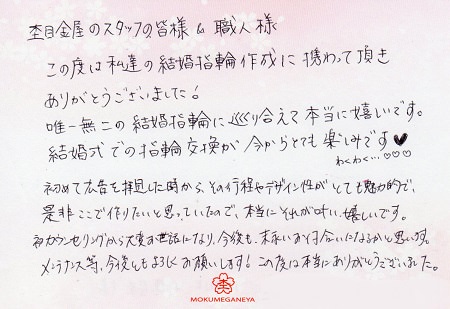 杢目金屋のスタッフの皆様 & 職人様
この度は私達の結婚指輪作成に携わって頂き
ありがとうございました!
唯一無二の結婚指輪に巡り合えて本当に嬉しいです。
結婚式での指輪交換が今からとても楽しみです♥
わくわく…♡♡♡
初めて広告を拝見した時から、その行程やデザイン性がとても魅力的で、
是非ここで作りたいと思っていたので、本当にそれが叶い、嬉しいです。
初カウンセリングから大変お世話になり、今後も末永いお付合いになるかと思います。
メンテナンス等、今後ともよろしくお願いします! この度は本当にありがとうございました。
MOKUMEGANEYA